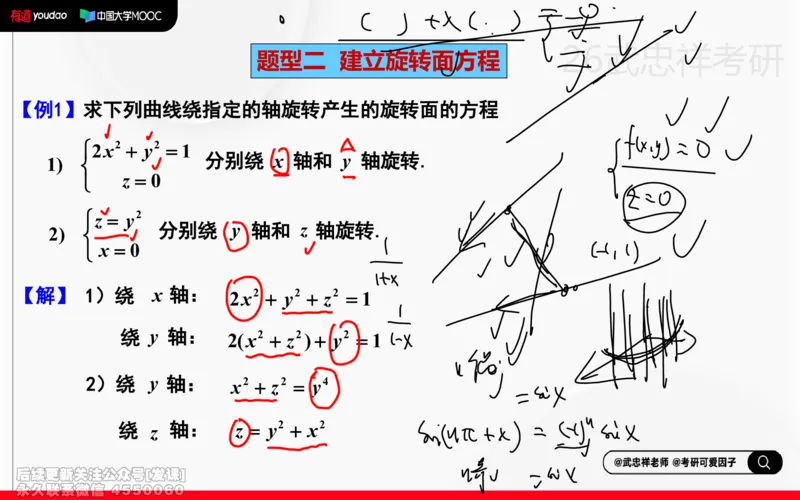 有道 youdao 中国大学MOOC
( ) + x ( . ) =
题型二 建立旋转面方程
26武忠祥考研
【例1】求下列曲线绕指定的轴旋转产生的旋转面的方程
1) { 2x² + y² = 1
z = 0
分别绕 x 轴和 y 轴旋转.
f(x,y) = 0
z = 0
2) { z = y²
x = 0
分别绕 y 轴和 z 轴旋转.
1/(1+x)
(-1, 1)
【解】 1）绕 x 轴： 2x² + y² + z² = 1
1/(1-x)
绕 y 轴： 2(x² + z²) + y² = 1
2）绕 y 轴： x² + z² = y⁴
= sin x
绕 z 轴： z = y² + x²
sin(nπ + x) = (-1)ⁿ sin x
= sin x
@武忠祥老师 @考研可爱因子
后续更新关注公众号[发课]
永久联系微信 4550060